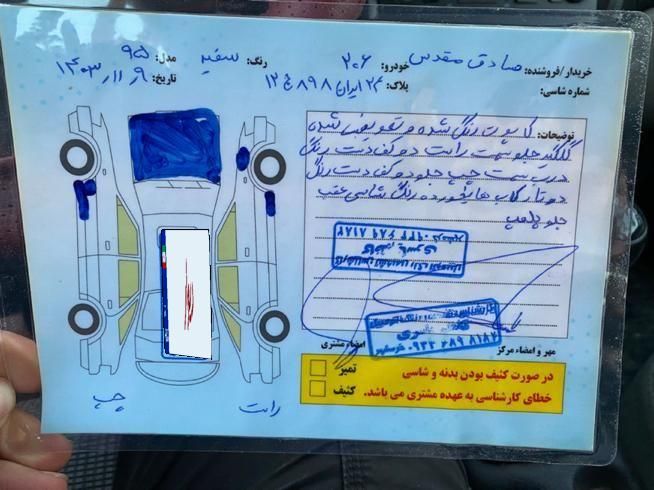 خریدار/فروشنده: صادق مقدس خودرو: ۲۰۶ رنگ: سفید مدل: ۹۵
شماره شاسی: پلاک: ۲۴ ایران ۸۹۸ ج ۱۲ تاریخ: ۱۴۰۳/۱۱/۹
توضیحات: کاپوت رنگ شده و تعویض شده
گلگیر جلو سمت راست دو کف دست رنگ
درب سمت چپ جلو دو کف دست رنگ
دو تا رکاب ها خورده رنگ شاسی عقب
جلو پلمپ
۰۹۳۳ ۶۸۹ ۸۱۸۲
۰۹۳۳ ۶۸۹ ۸۱۸۲
مهر و امضاء مرکز
امضاء مشتری
در صورت کثیف بودن بدنه و شاسی
خطای کارشناسی به عهده مشتری می باشد.
تمیز
کثیف
چپ
راست